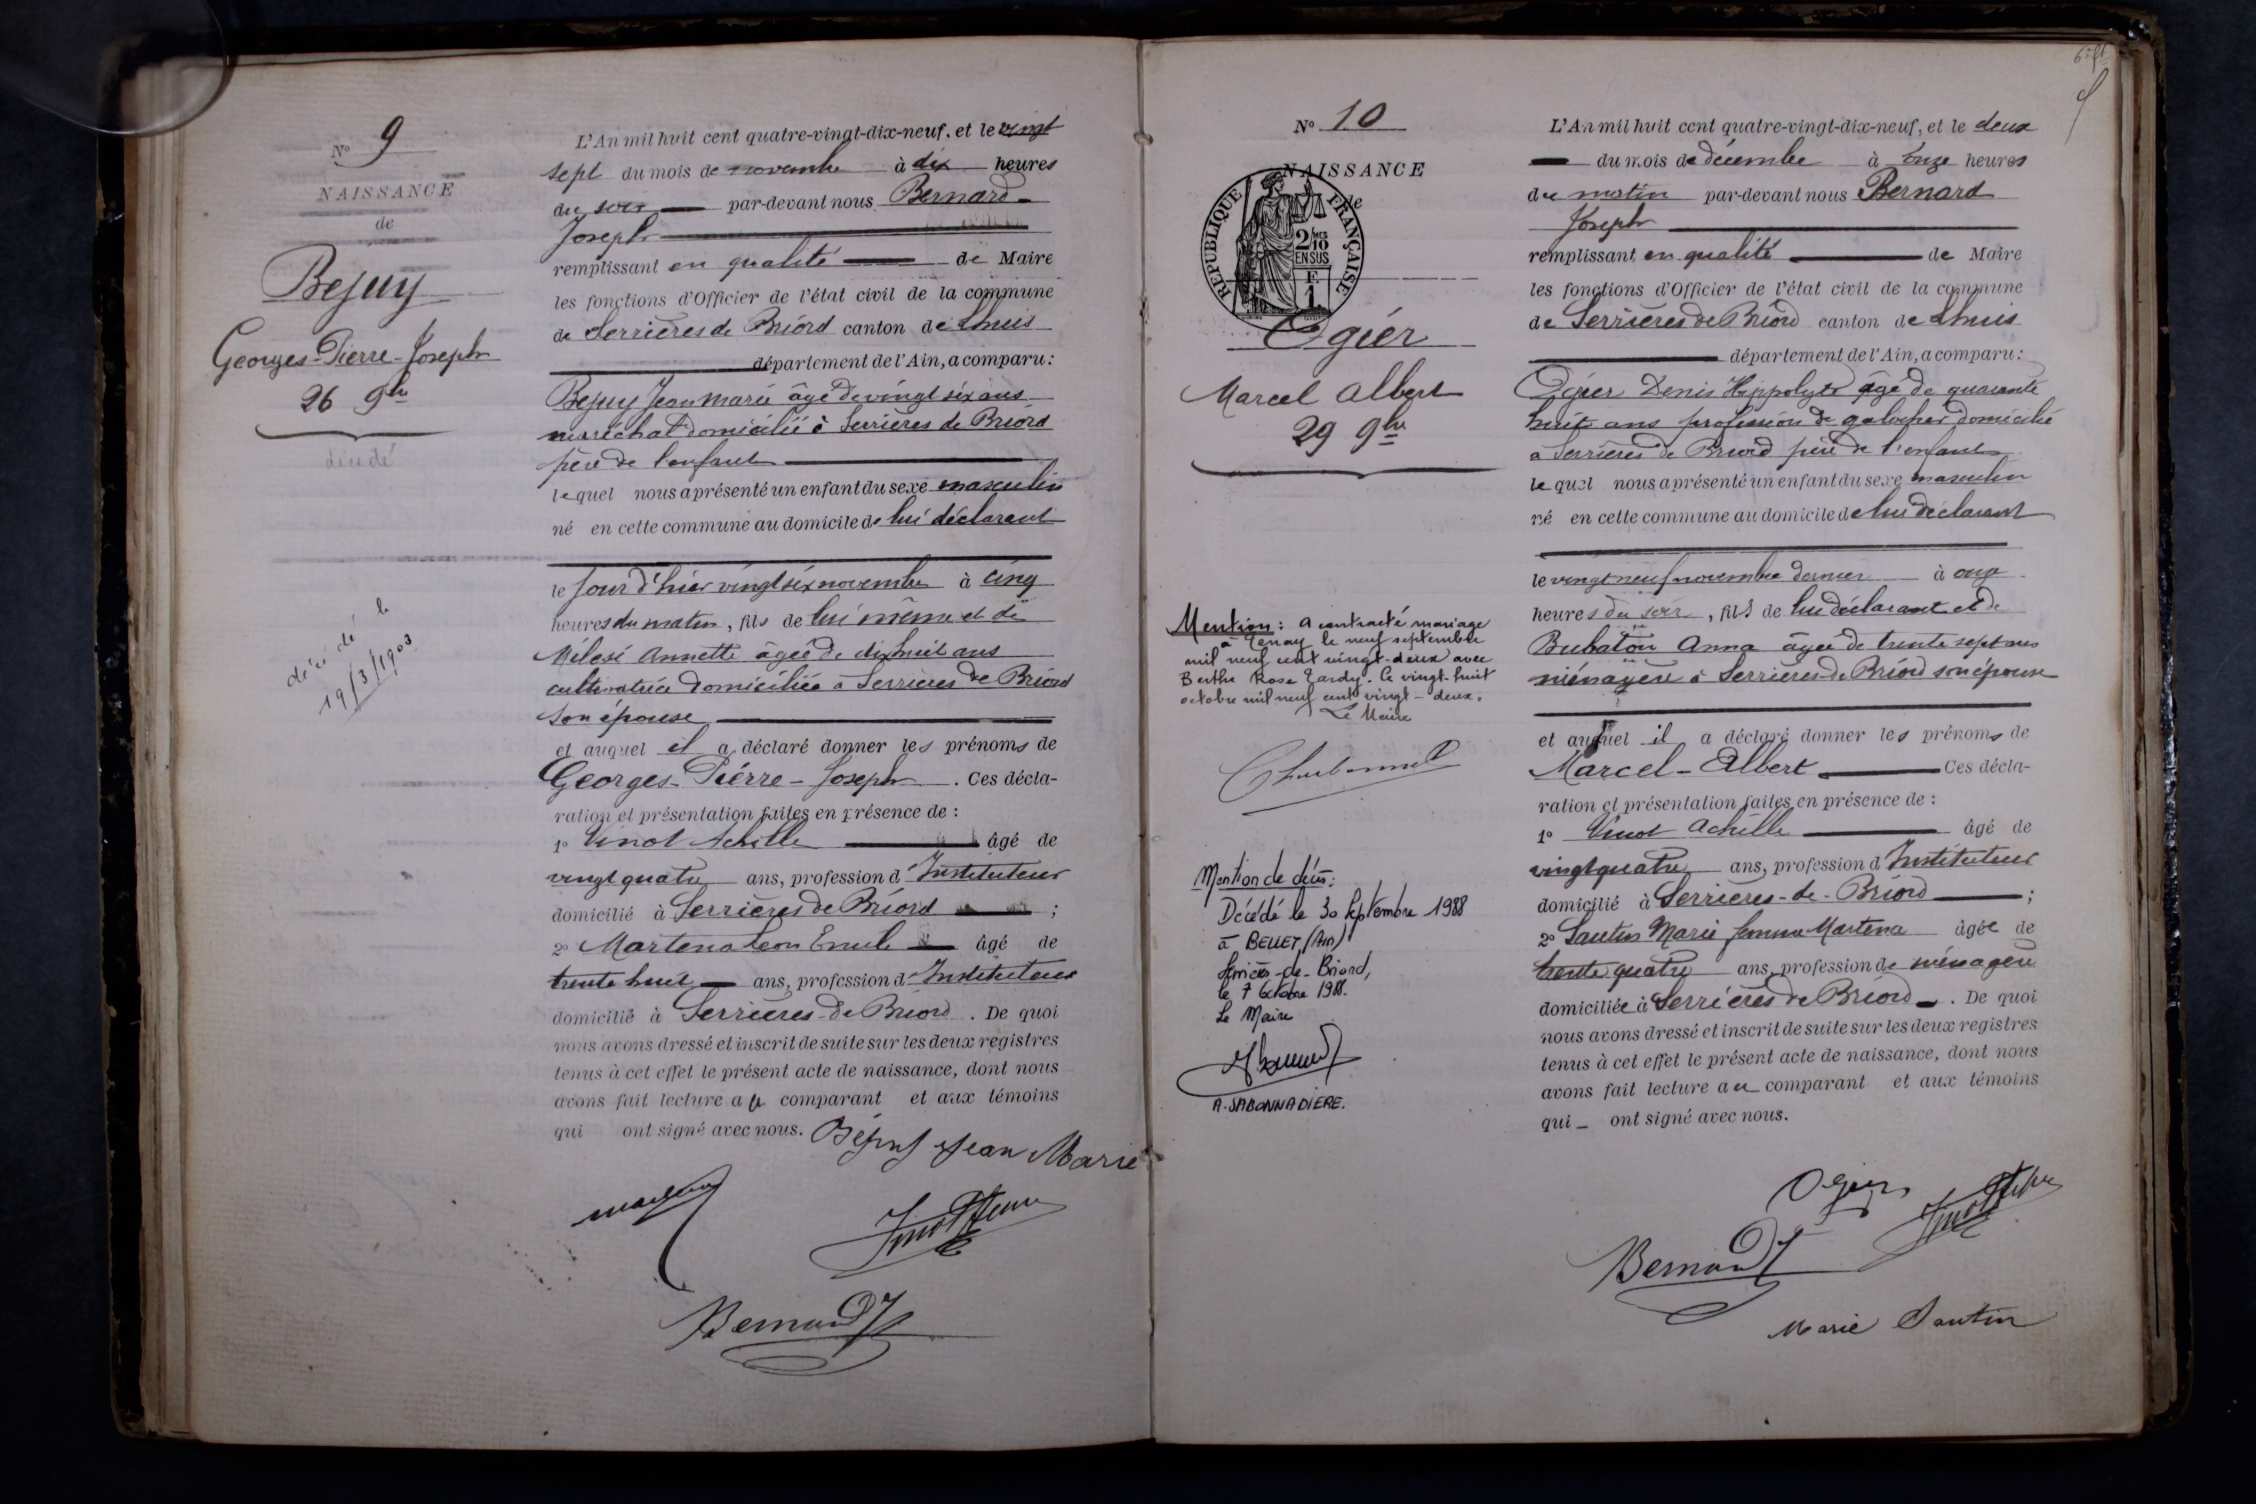 Nº 9
NAISSANCE
de
Bejuy
Georges-Pierre-Joseph
26 9bre
décédé
décédé le
19/3/1903
L'An mil huit cent quatre-vingt-dix-neuf, et le vingt
sept du mois de novembre à dix heures
du soir par-devant nous Bernard
Joseph
remplissant en qualité de Maire
les fonctions d'Officier de l'état civil de la commune
de Serrières de Briord canton de Lhuis
département de l'Ain, a comparu:
Bejuy Jean marie âgé de vingt six ans
maréchal domicilié à Serrières de Briord
père de l'enfant
lequel nous a présenté un enfant du sexe masculin
né en cette commune au domicile de lui déclarant
le jour d'hier vingt six novembre à cinq
heures du matin, fils de lui même et de
Milesi Annette âgée de dix huit ans
cultivatrice domiciliée à Serrières de Briord
son épouse
et auquel il a déclaré donner les prénoms de
Georges-Pierre-Joseph. Ces décla-
ration et présentation faites en présence de :
1º Vinot Achille âgé de
vingt quatre ans, profession d'Instituteur
domicilié à Serrières de Briord ;
2º Martena Léon Emile âgé de
trente huit ans, profession d'Instituteur
domicilié à Serrières-de Briord. De quoi
nous avons dressé et inscrit de suite sur les deux registres
tenus à cet effet le présent acte de naissance, dont nous
avons fait lecture au comparant et aux témoins
qui ont signé avec nous. Béjuy Jean Marie
Bernard J
Nº 10
NAISSANCE
de
REPUBLIQUE FRANÇAISE
2/10
EN SUS
F
1
Ogier
Marcel Albert
29 9bre
Mention : A contracté mariage
à Tenay le neuf septembre
mil neuf cent vingt-deux avec
Berthe Rose Tardy. Ce vingt-huit
octobre mil neuf cent vingt-deux.
Le Maire
Mention de décès:
Décédé le 30 Septembre 1988
à BELLEY (Ain)
Serrières-de-Briord,
le 7 Octobre 1988.
Le Maire
A. SABONNADIERE.
L'An mil huit cent quatre-vingt-dix-neuf, et le deux
du mois de décembre à onze heures
du matin par-devant nous Bernard
Joseph
remplissant en qualité de Maire
les fonctions d'Officier de l'état civil de la commune
de Serrières de Briord canton de Lhuis
département de l'Ain, a comparu:
Ogier Denis Hippolyte âgé de quarante
huit ans profession de galocher domicilié
à Serrières de Briord père de l'enfant
lequel nous a présenté un enfant du sexe masculin
né en cette commune au domicile de lui déclarant
le vingt neuf novembre dernier à onze
heures du soir, fils de lui déclarant et de
Bubaton Anna âgée de trente sept ans
ménagère à Serrières-de Briord son épouse
et auquel il a déclaré donner les prénoms de
Marcel-Albert Ces décla-
ration et présentation faites en présence de :
1º Vinot Achille âgé de
vingt quatre ans, profession d'Instituteur
domicilié à Serrières-de-Briord ;
2º Santin Marie femme Martena âgée de
trente quatre ans, profession de ménagère
domiciliée à Serrières de Briord. De quoi
nous avons dressé et inscrit de suite sur les deux registres
tenus à cet effet le présent acte de naissance, dont nous
avons fait lecture au comparant et aux témoins
qui ont signé avec nous.
Ogier
Bernard J
Marie Santin